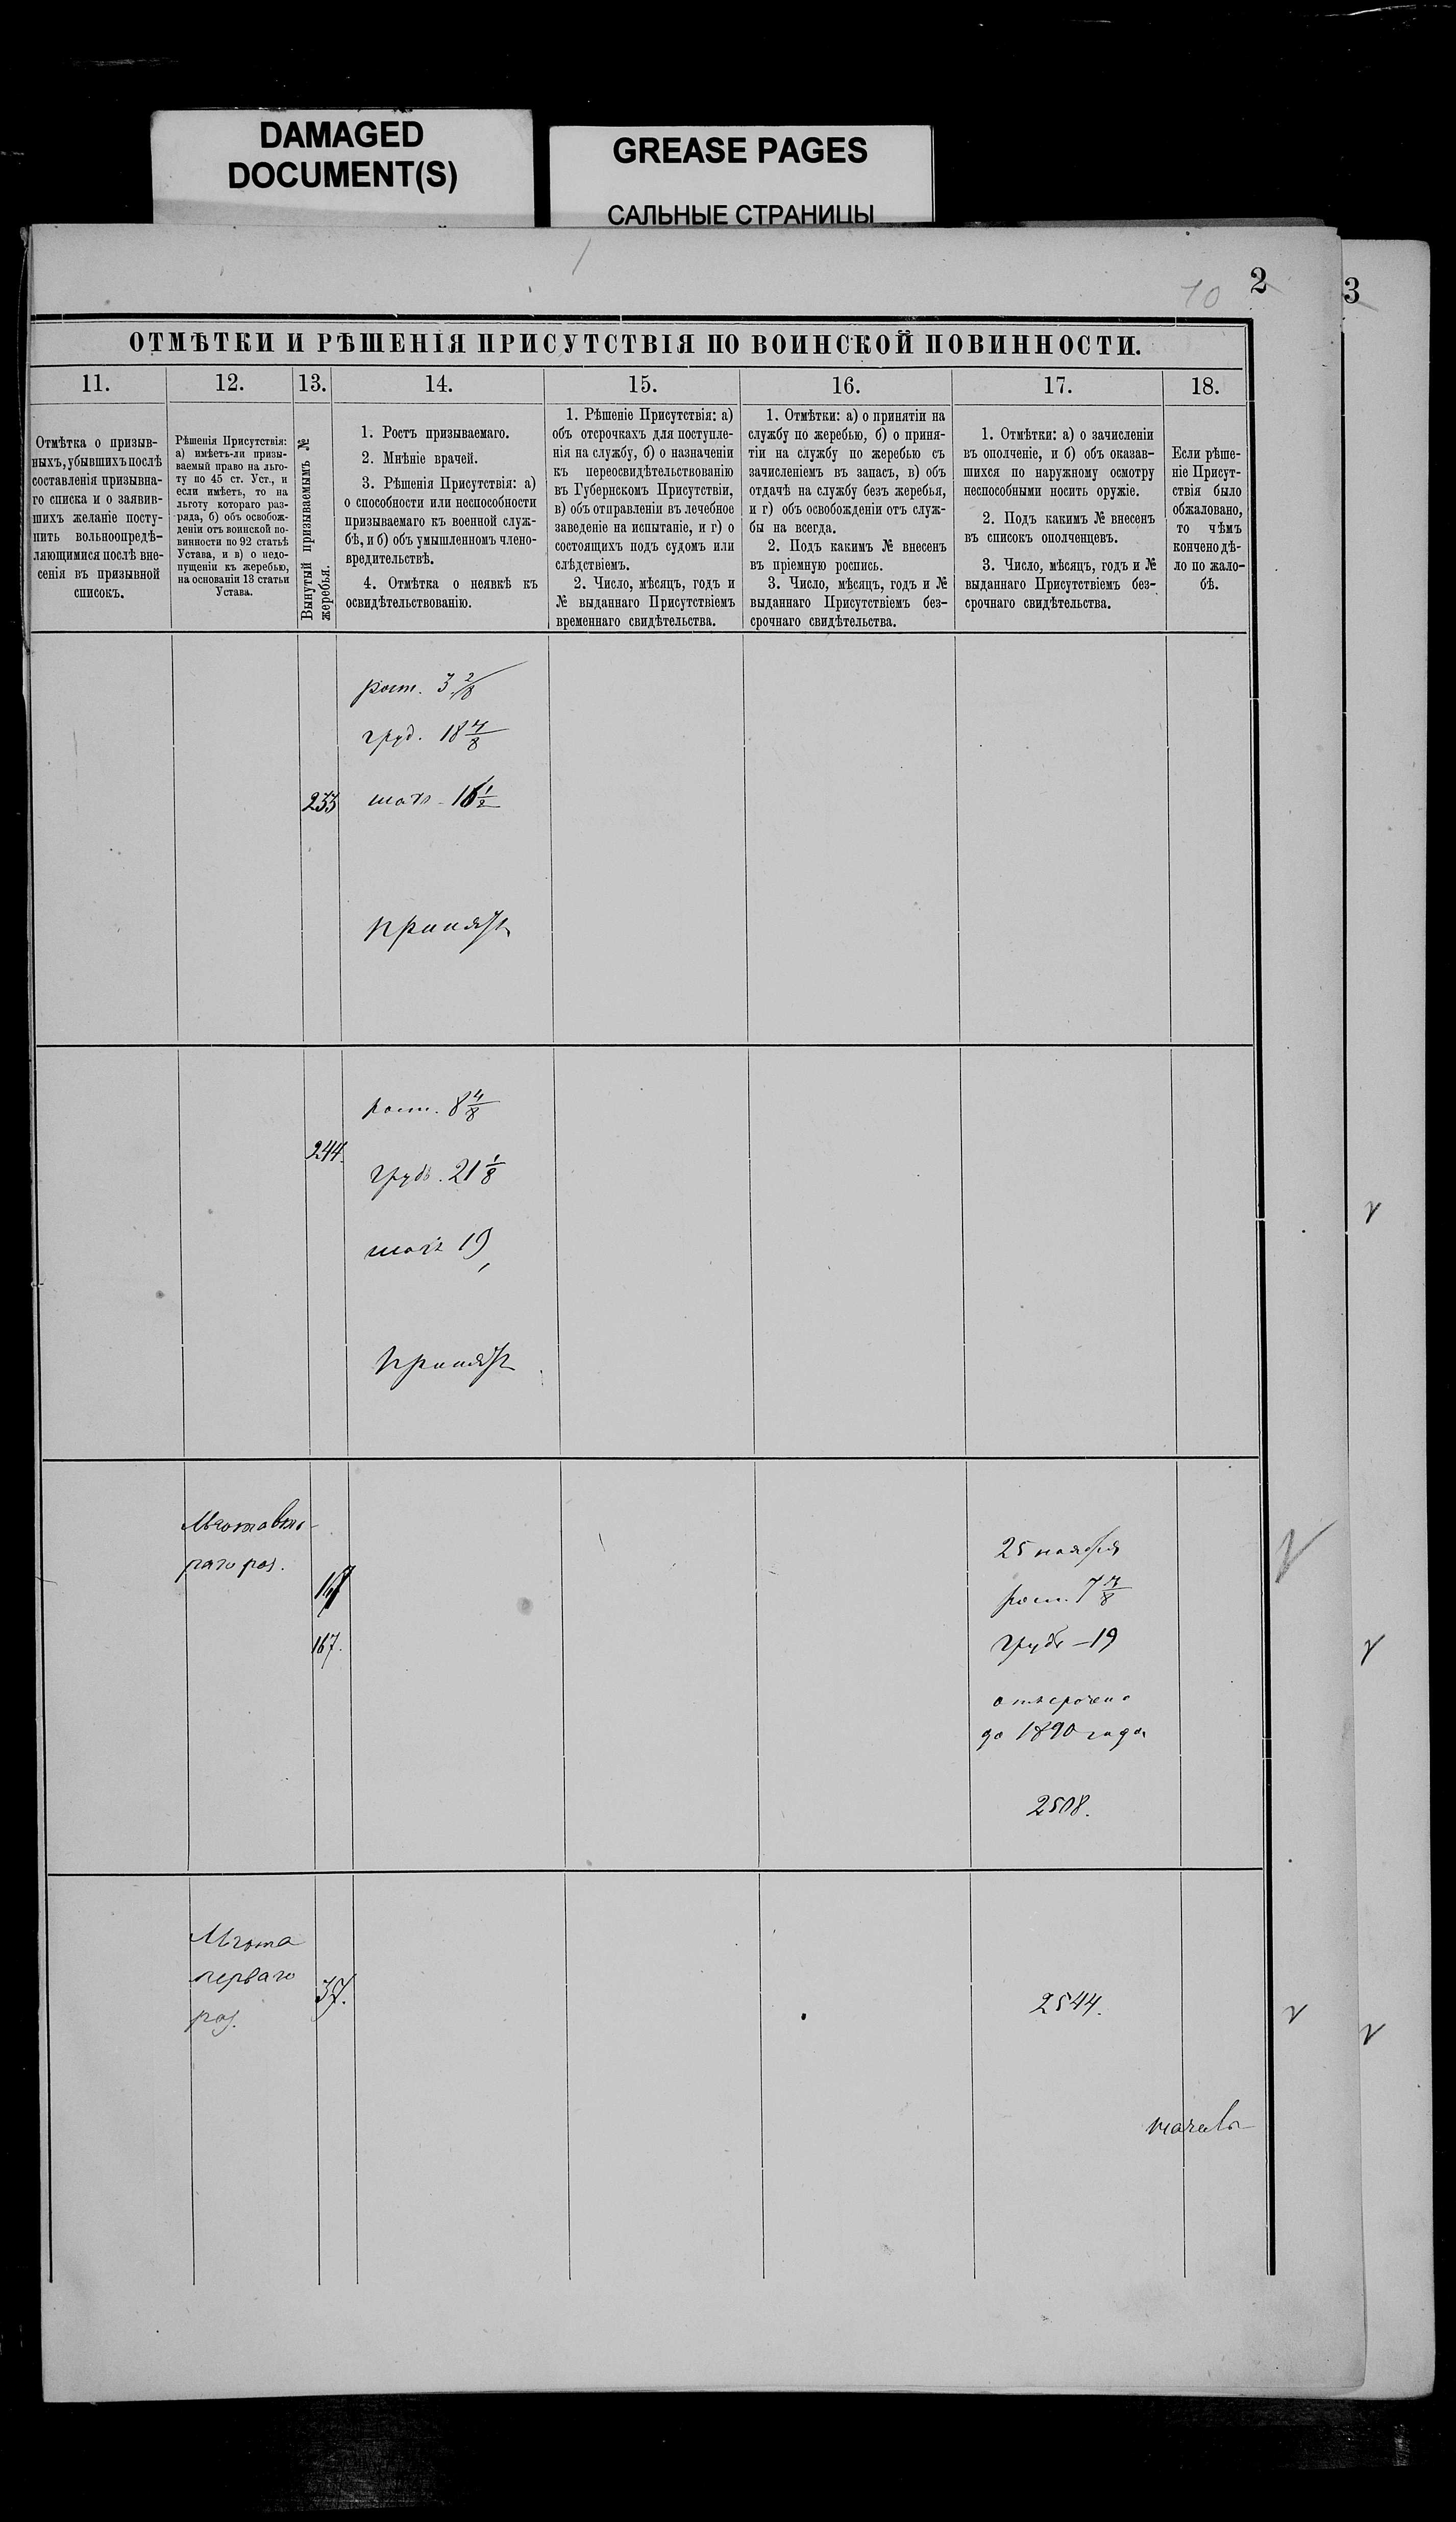 DAMAGED
DOCUMENT(S)
GREASE PAGES
САЛЬНЫЕ СТРАНИЦЫ
10
2
3
ОТМѢТКИ И РѢШЕНІЯ ПРИСУТСТВІЯ ПО ВОИНСКОЙ ПОВИННОСТИ.
11.
12.
13.
14.
15.
16.
17.
18.
Отмѣтка о призыв-
ныхъ, убывшихъ послѣ
составленія призывна-
го списка и о заявив-
шихъ желаніе посту-
пить вольноопредѣ-
ляющимися послѣ вне-
сенія въ призывной
списокъ.
Рѣшенія Присутствія:
а) имѣетъ-ли призы-
ваемый право на льго-
ту по 45 ст. Уст., и
если имѣетъ, то на
льготу котораго раз-
ряда, б) объ освобож-
деніи отъ воинской по-
винности по 92 статьѣ
Устава, и в) о недо-
пущеніи къ жеребью,
на основаніи 13 статьи
Устава.
Вынутый призываемымъ №
жеребья.
1. Ростъ призываемаго.
2. Мнѣніе врачей.
3. Рѣшенія Присутствія: а)
о способности или неспособности
призываемаго къ военной служ-
бѣ, и б) объ умышленномъ члено-
вредительствѣ.
4. Отмѣтка о неявкѣ къ
освидѣтельствованію.
1. Рѣшеніе Присутствія: а)
объ отсрочкахъ для поступле-
нія на службу, б) о назначеніи
къ переосвидѣтельствованію
въ Губернскомъ Присутствіи,
в) объ отправленіи въ лечебное
заведеніе на испытаніе, и г) о
состоящихъ подъ судомъ или
слѣдствіемъ.
2. Число, мѣсяцъ, годъ и
№ выданнаго Присутствіемъ
временнаго свидѣтельства.
1. Отмѣтки: а) о принятіи на
службу по жеребью, б) о приня-
тіи на службу по жеребью съ
зачисленіемъ въ запасъ, в) объ
отдачѣ на службу безъ жеребья,
и г) объ освобожденіи отъ служ-
бы на всегда.
2. Подъ какимъ № внесенъ
въ пріемную роспись.
3. Число, мѣсяцъ, годъ и №
выданнаго Присутствіемъ без-
срочнаго свидѣтельства.
1. Отмѣтки: а) о зачисленіи
въ ополченіе, и б) объ оказав-
шихся по наружному осмотру
неспособными носить оружіе.
2. Подъ какимъ № внесенъ
въ списокъ ополченцевъ.
3. Число, мѣсяцъ, годъ и №
выданнаго Присутствіемъ без-
срочнаго свидѣтельства.
Если рѣше-
ніе Присут-
ствія было
обжаловано,
то чѣмъ
кончено дѣ-
ло по жало-
бѣ.
рост. 3 2/8
груд. 18 4/8
233
16 1/2
принятъ
рост. 8 4/8
244.
грудь. 21 1/8
19
принятъ
Льгота вто-
раго раз.
167.
25 ноября
рост. 7
грудь - 19
отсрочено
до 1890 года
2508.
Льгота
перваго
раз.
37.
2544.